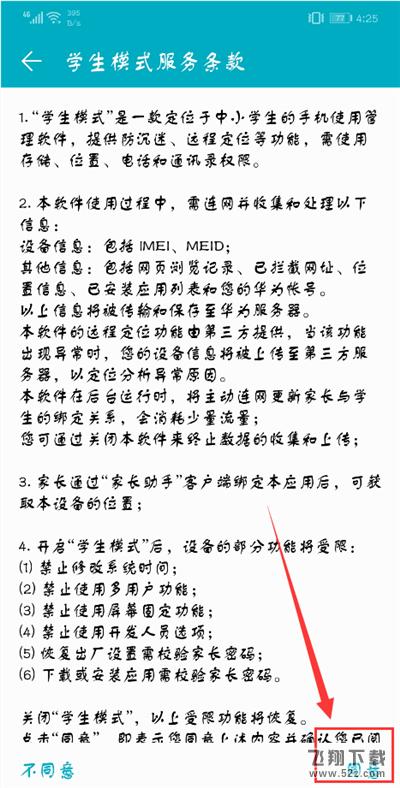 4G 395 B/s 77 4:25
学生模式服务条款
1.“学生模式”是一款定位于中小学生的手机使用管
理软件，提供防沉迷、远程定位等功能，需使用
存储、位置、电话和通讯录权限。
2. 本软件使用过程中，需连网并收集和处理以下
信息：
设备信息：包括 IMEI、MEID；
其他信息：包括网页浏览记录、已拦截网址、位
置信息、已安装应用列表和您的华为帐号。
以上信息将被传输和保存至华为服务器。
本软件的远程定位功能由第三方提供，当该功能
出现异常时，您的设备信息将被上传至第三方服
务器，以定位分析异常原因。
本软件在后台运行时，将主动连网更新家长与学
生的绑定关系，会消耗少量流量；
您可通过关闭本软件来终止数据的收集和上传；
3. 家长通过“家长助手”客户端绑定本应用后，可获
取本设备的位置；
4. 开启“学生模式”后，设备的部分功能将受限：
(1) 禁止修改系统时间；
(2) 禁止使用多用户功能；
(3) 禁止使用屏幕固定功能；
(4) 禁止使用开发人员选项；
(5) 恢复出厂设置需校验家长密码；
(6) 下载或安装应用需校验家长密码。
关闭“学生模式”，以上受限功能将恢复。
点击“同意”，即表示您同意上述内容并确认您已阅
不同意 同意
飞翔下载
www.52z.com